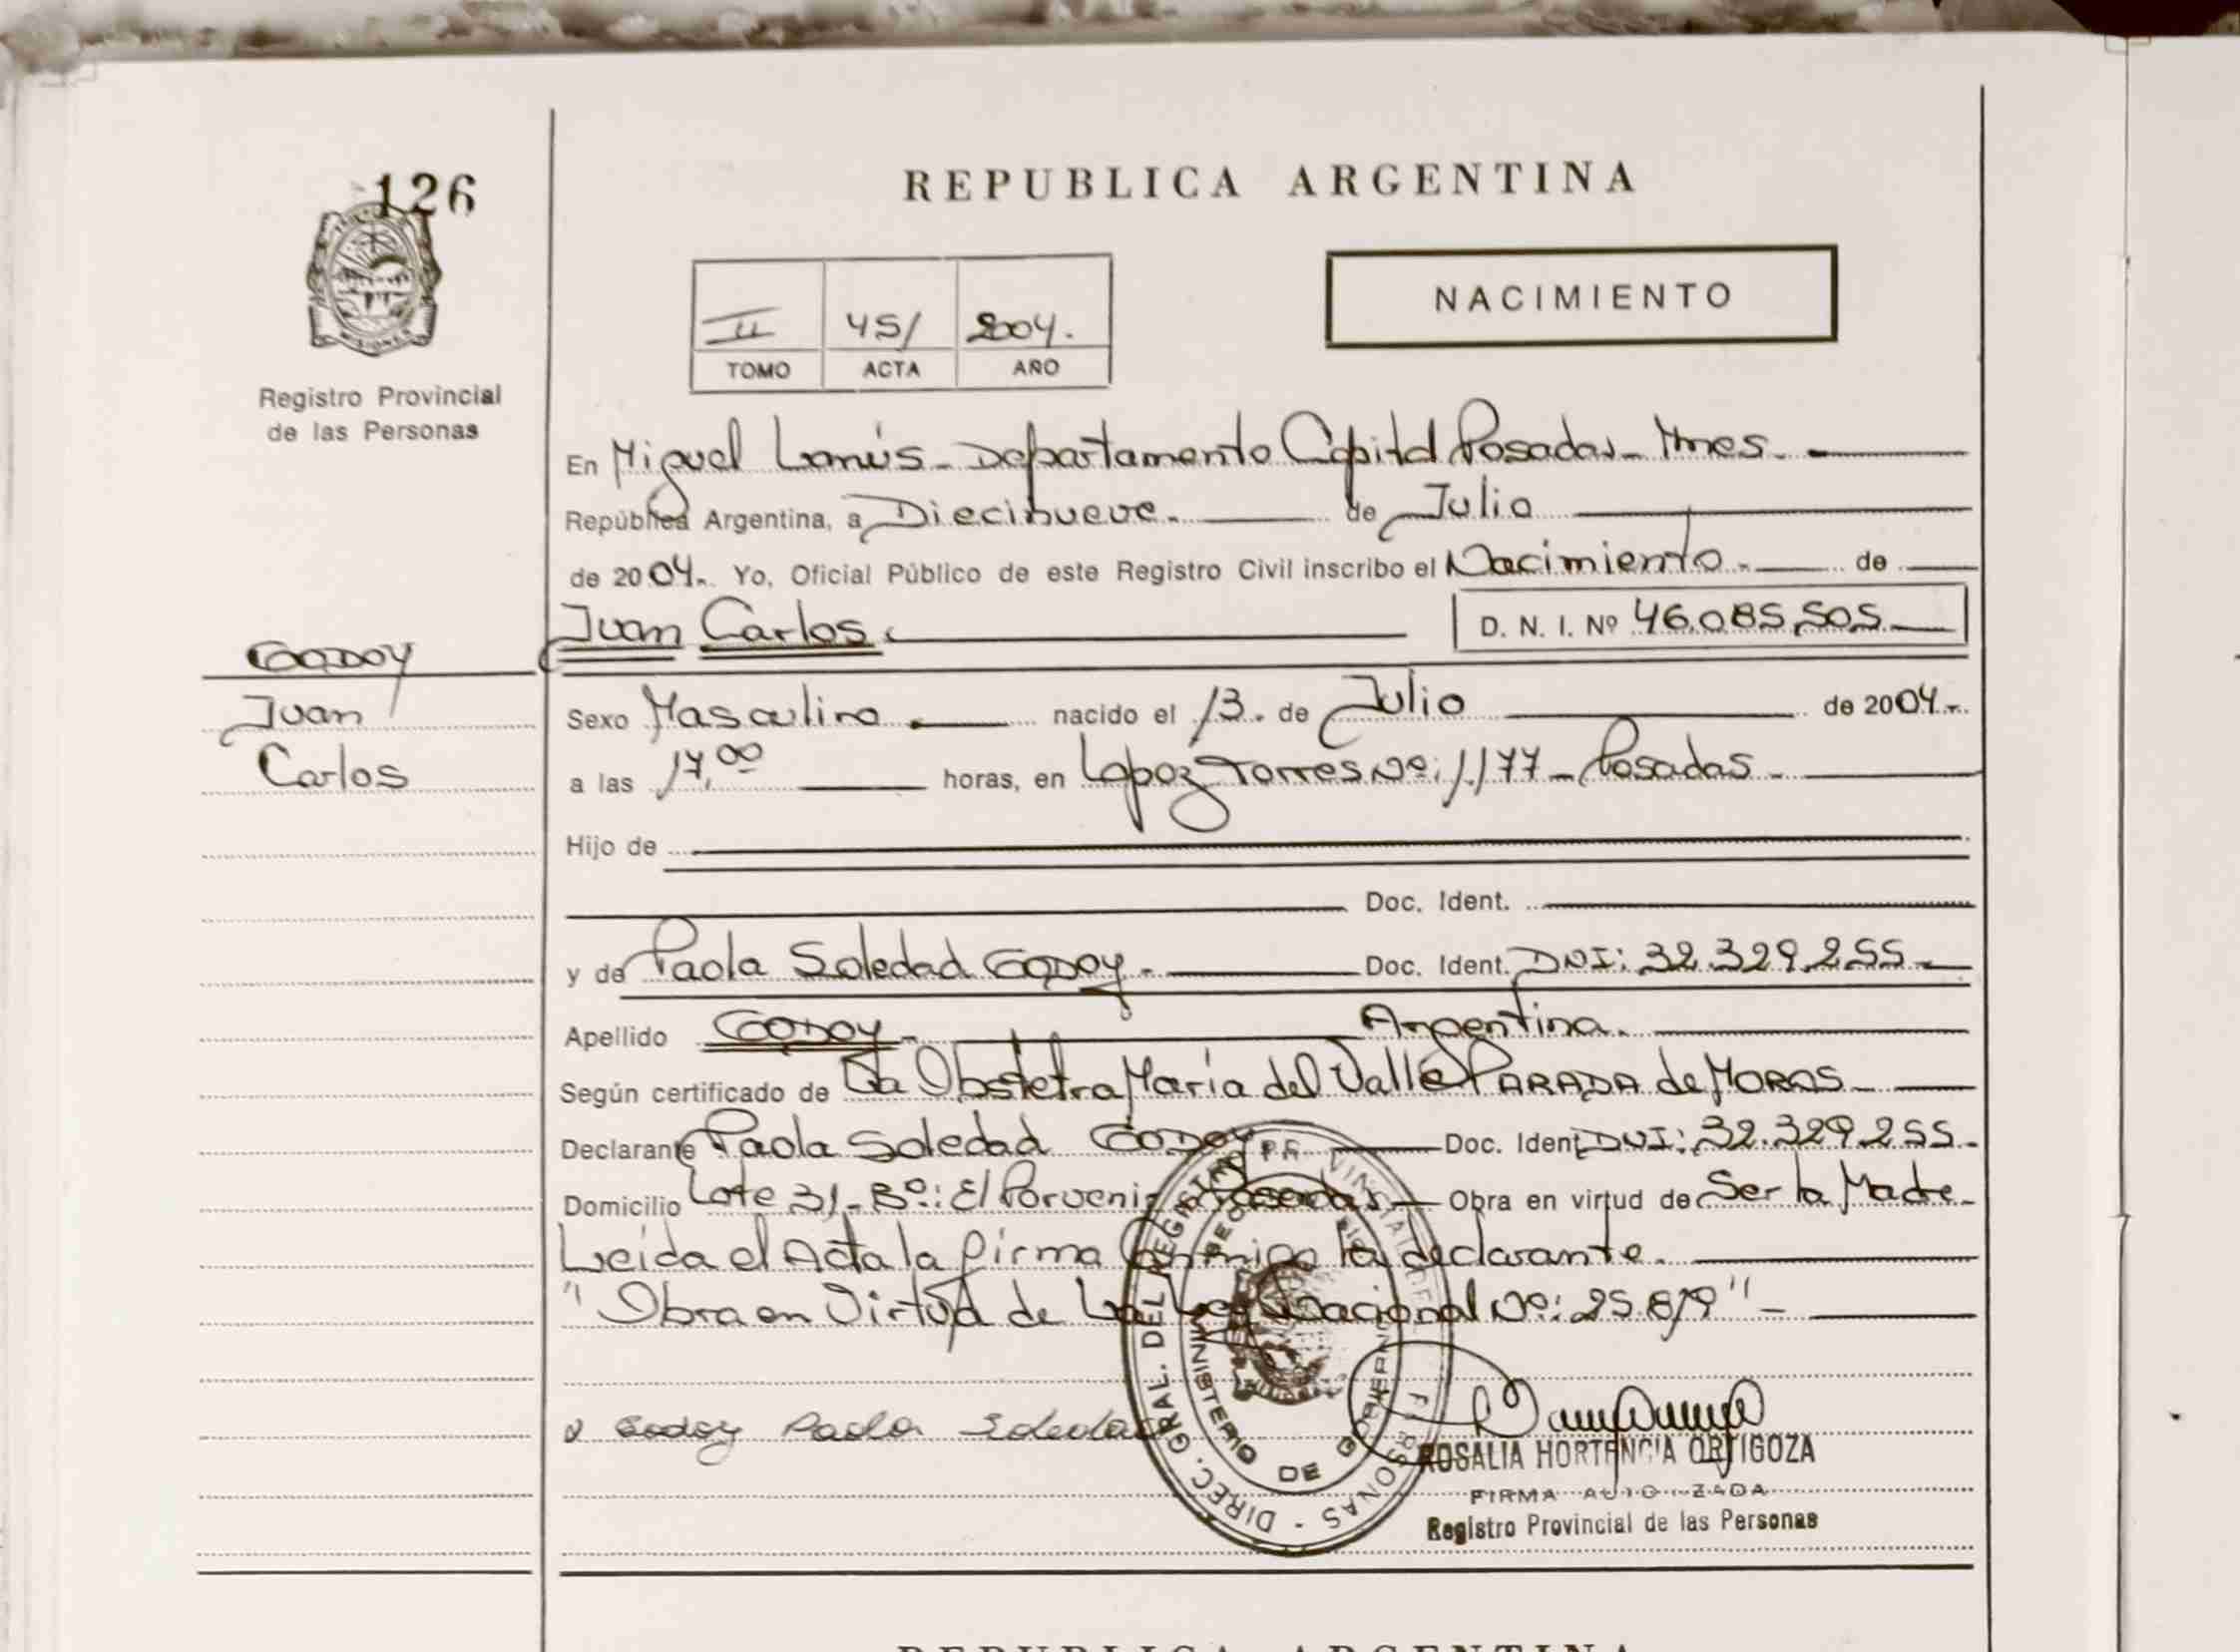 126
REPUBLICA ARGENTINA
NACIMIENTO
II 451 2004.
TOMO ACTA AÑO
Registro Provincial
de las Personas
En Miguel Lanús - Departamento Capital Posadas - Mnes.
República Argentina, a Diecinueve. de Julio
de 2004. Yo, Oficial Público de este Registro Civil inscribo el Nacimiento. de
Juan Carlos. D. N. I. Nº 46.085.505
GODOY
Juan
Carlos
Sexo Masculino nacido el 13. de Julio de 2004.
a las 17,00 horas, en Lopez Torres Nº: 1177 - Posadas -
Hijo de
Doc. Ident.
y de Paola Soledad GODOY. Doc. Ident. DNI: 32.329.255
Apellido GODOY - Argentina.
Según certificado de La Obstetra María del Valle PARADA de MORAS
Declarante Paola Soledad GODOY Doc. Ident DNI: 32.329.255.
Domicilio Lote 31 - Bº: El Porvenir Posadas Obra en virtud de Ser la Madre
Leída el Acta la firma conmigo la declarante.
"Obra en Virtud de La Ley Nacional Nº: 25.819" -
Godoy Paola Soledad
DIREC. GRAL. DEL REGISTRO PERSONAS
MINISTERIO DE GOBIERNO
ROSALIA HORTENCIA ORTIGOZA
FIRMA AUTORIZADA
Registro Provincial de las Personas
REPUBLICA ARGENTINA